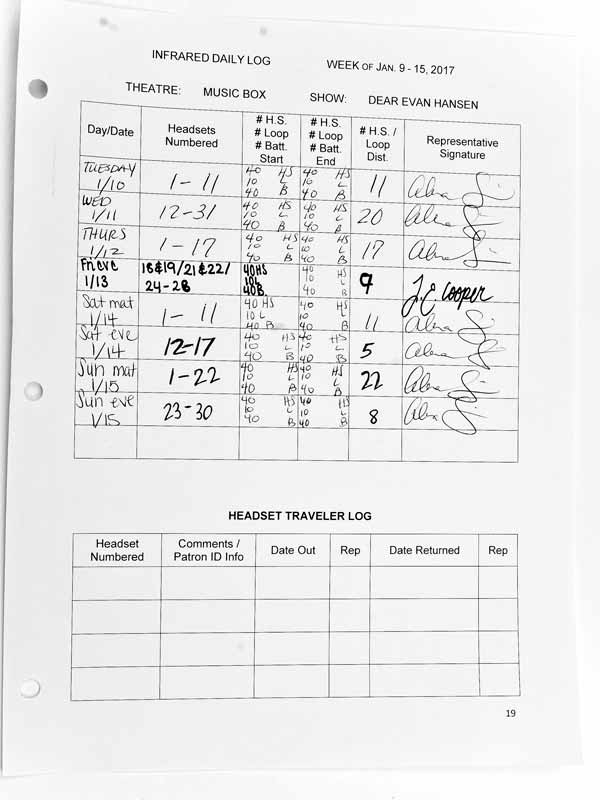 INFRARED DAILY LOG WEEK OF JAN. 9 - 15, 2017
THEATRE: MUSIC BOX SHOW: DEAR EVAN HANSEN
Day/Date Headsets Numbered # H.S. # Loop # Batt. Start # H.S. # Loop # Batt. End # H.S. / Loop Dist. Representative Signature
TUESDAY 1/10 1-11 40 HS 10 L 40 B 40 HS 10 L 40 B 11
WED 1/11 12-31 40 HS 10 L 40 B 40 HS 10 L 40 B 20
THURS 1/12 1-17 40 HS 10 L 40 B 40 HS 10 L 40 B 17
Fri eve 1/13 18&19/21&22/ 24-28 40HS 10L 40B 40 HS 10 L 40 B 9 J.E. Cooper
Sat mat 1/14 1-11 40 HS 10 L 40 B 40 HS 10 L 40 B 11
Sat eve 1/14 12-17 40 HS 10 L 40 B 40 HS 10 L 40 B 5
Sun mat 1/15 1-22 40 HS 10 L 40 B 40 HS 10 L 40 B 22
Sun eve 1/15 23-30 40 HS 10 L 40 B 40 HS 10 L 40 B 8
HEADSET TRAVELER LOG
Headset Numbered Comments / Patron ID Info Date Out Rep Date Returned Rep
19